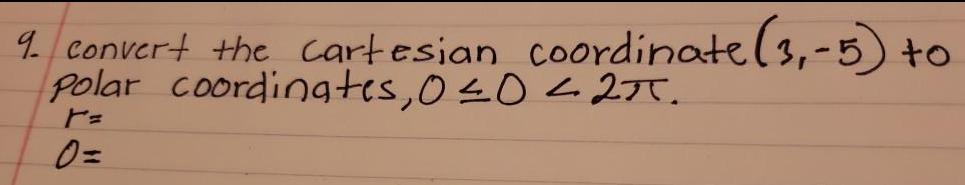 9. convert the cartesian coordinate (3,-5) to
polar coordinates, 0 ≤ 0 < 2π.
r=
0=